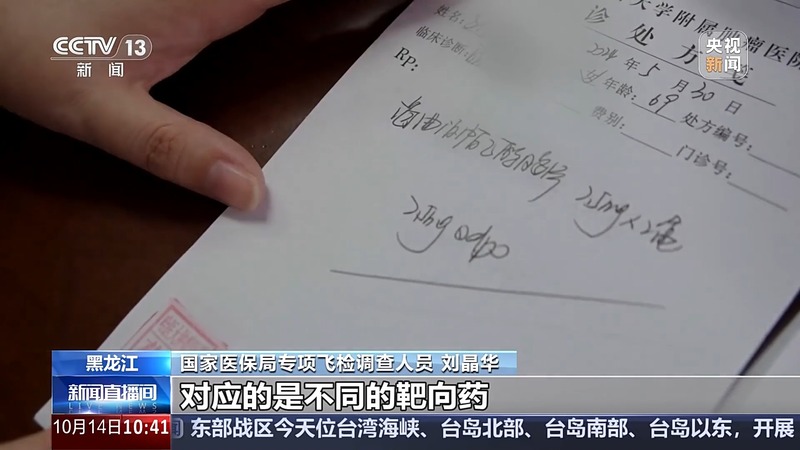 CCTV 13
新闻
央视
新闻
大学附属肿瘤医院
诊处方笺
姓名:
2024年5月30日
临床诊断:
女 年龄: 69 处方编号:
RP:
费别: 门诊号:
25mg×2
25mg qd po
黑龙江
国家医保局专项飞检调查人员 刘晶华
新闻直播间
对应的是不同的靶向药
10月14日10:41
东部战区今天位台湾海峡、台岛北部、台岛南部、台岛以东,开展